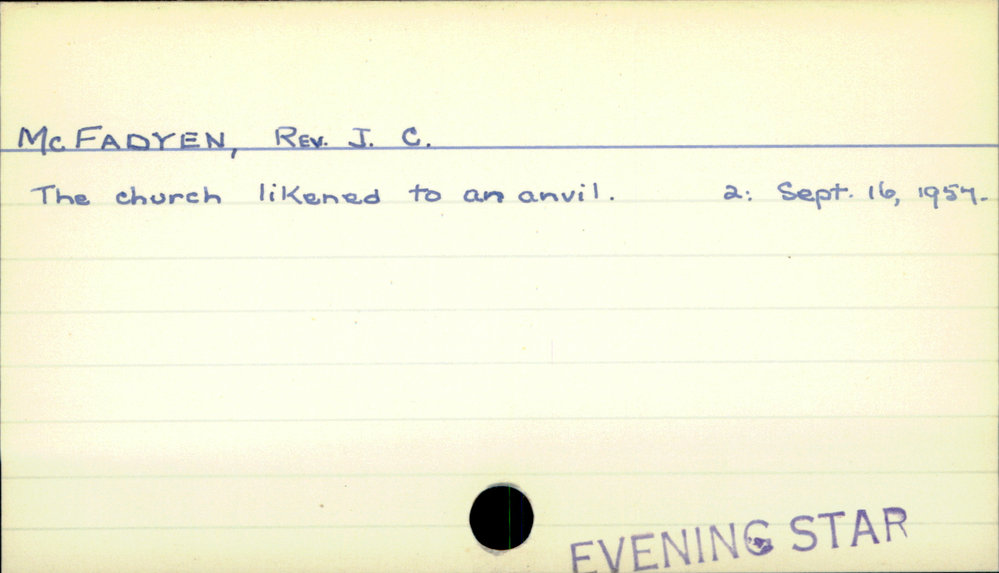 McFADYEN, REV. J. C.
The church likened to an anvil. 2: Sept. 16, 1957.
EVENING STAR